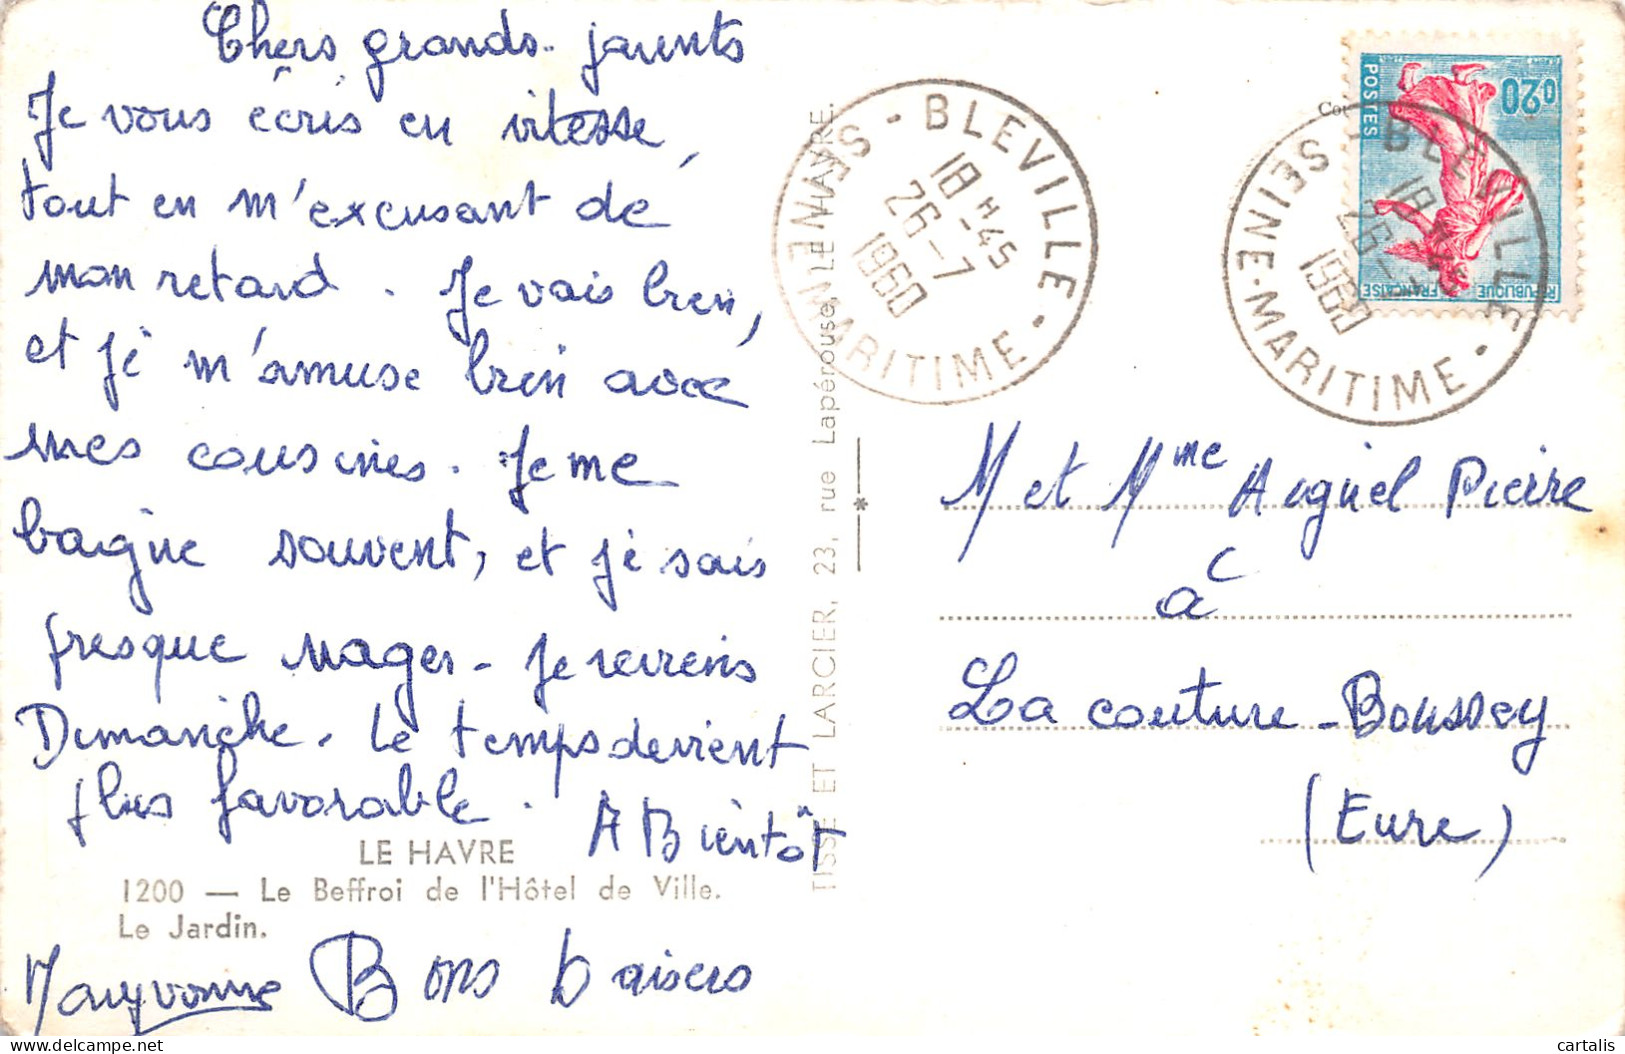 Chers grands-parents
Je vous écris en vitesse,
tout en m'excusant de
mon retard. Je vais bien,
et je m'amuse bien avec
mes cousines. Je me
baigne souvent, et je sais
presque nager - Je reviens
Dimanche. Le temps devient
plus favorable.
A Bientôt
LE HAVRE
1200 — Le Beffroi de l'Hôtel de Ville.
Le Jardin.
Maryvonne Bons baisers
TISSE ET LARCIER, 23, rue Lapérouse, LE HAVRE.
BLEVILLE
18H-45
26-7
1960
SEINE-MARITIME
0,20
POSTES
REPUBLIQUE FRANÇAISE
BLEVILLE
18H-45
26-7
1960
SEINE-MARITIME
M et Mme Auguel Pierre
à
La couture-Boussey
(Eure)
cartalis